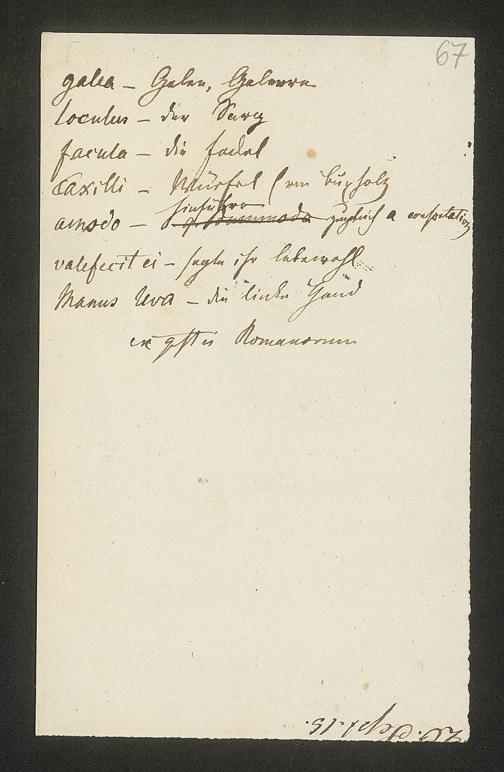 67
galea – Galee, Galeere
loculus – der Sarg
facula – die Fackel
taxilli – Würfel (von Buxholz
amodo – hinführo
zugleich a conspectatione
valefecit ei – sagte ihr lebewohl
Manus leva – die linke Hand
ex gestis Romanorum
Sept. 15.